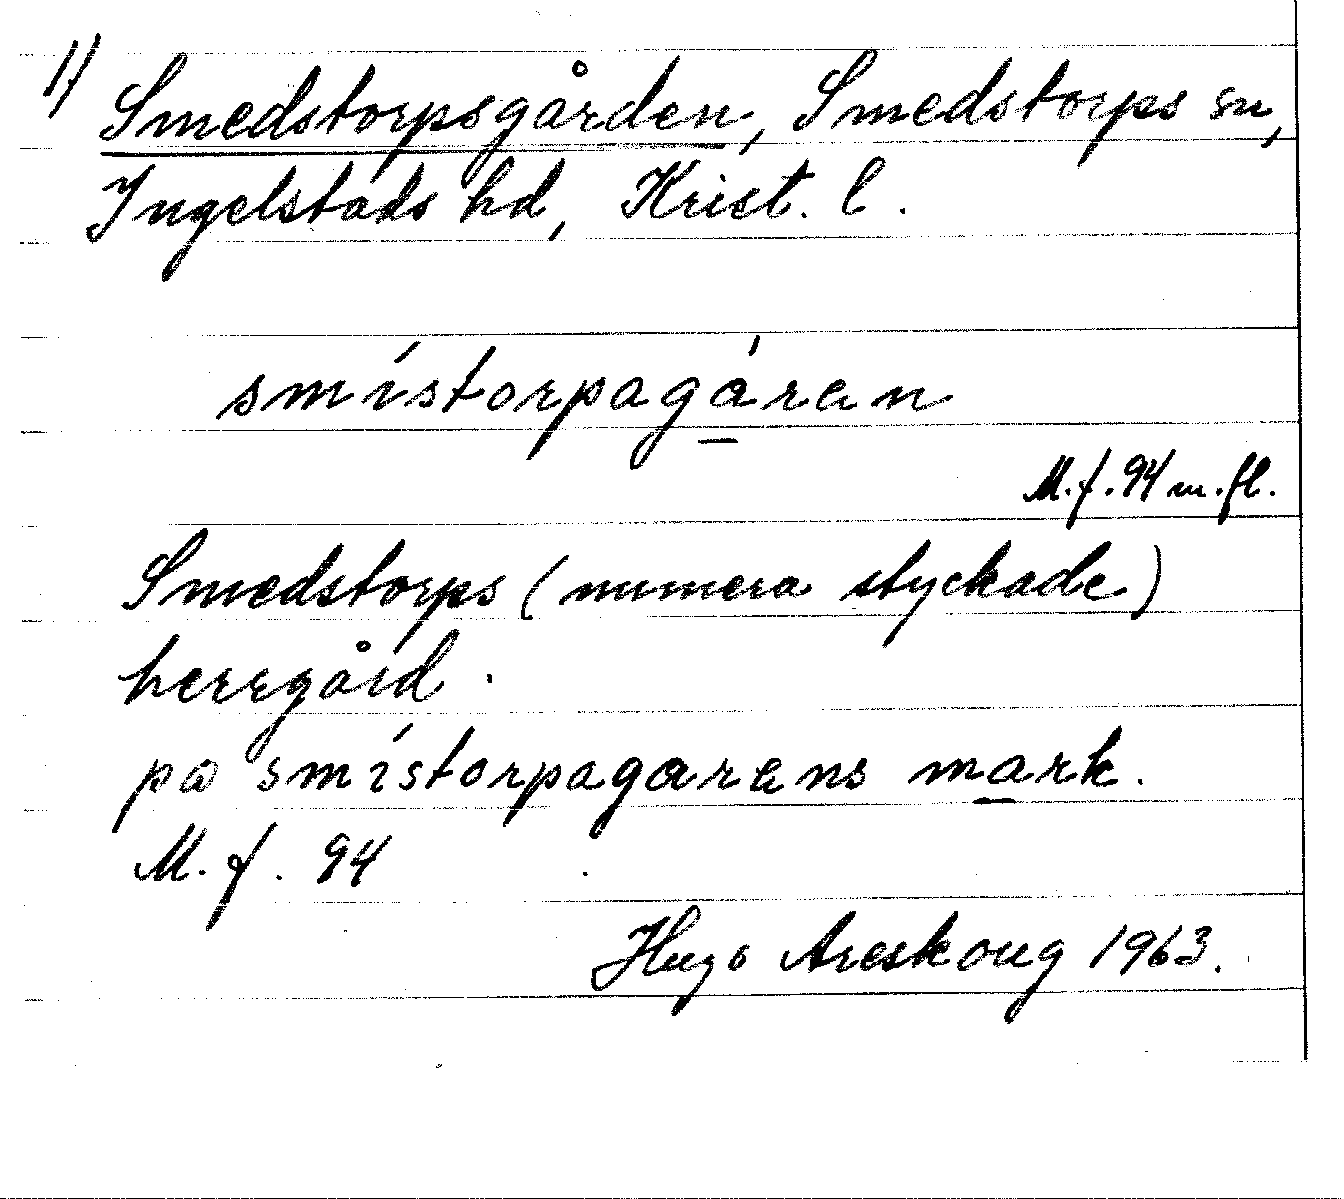 1) Smedstorpsgården, Smedstorps sn,
Ingelstads hd, Krist. l.
smístorpagáran
M.f. 94 m.fl.
Smedstorps (numera styckade)
herrgård.
pa smístorpagarans mark.
M.f. 94
Hugo Areskoug 1963.